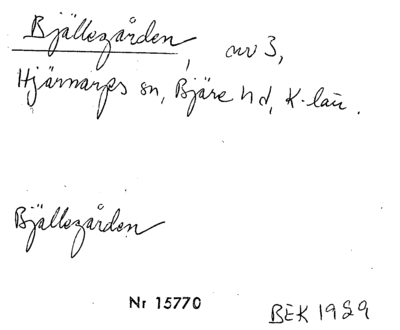 Bjällegården, nr 3,
Hjärnarps sn, Bjäre hd, K-län.
Bjällegården
Nr 15770
BEK 1929